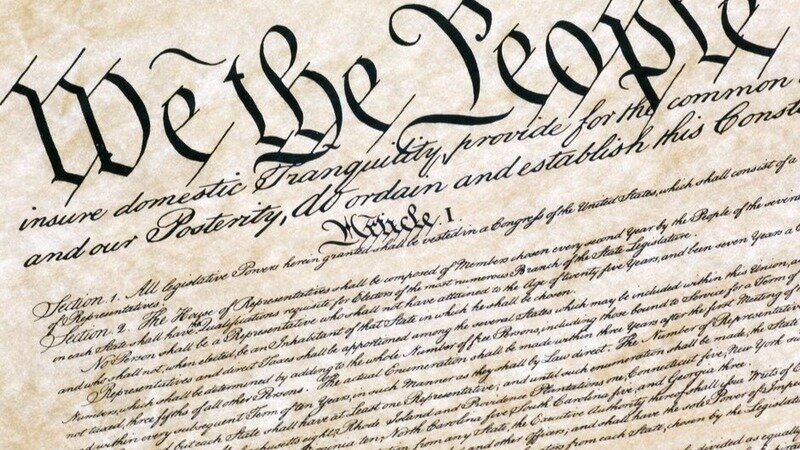 We the People
insure domestic Tranquility, provide for the common
and our Posterity, do ordain and establish this Const
Article I.
Section 1. All legislative Powers herein granted shall be vested in a Congress of the United States, which shall consist of a
of Representatives.
Section 2. The House of Representatives shall be composed of Members chosen every second Year by the People of the several
in each State shall have Qualifications requisite for Electors of the most numerous Branch of the State Legislature.
No Person shall be a Representative who shall not have attained to the Age of twenty five Years, and been seven Years a C
and who shall not, when elected, be an Inhabitant of that State in which he shall be chosen.
Representatives and direct Taxes shall be apportioned among the several States which may be included within this Union, a
Numbers, which shall be determined by adding to the whole Number of free Persons, including those bound to Service for a Term of
not taxed, three fifths of all other Persons. The actual Enumeration shall be made within three Years after the first Meeting of
within every subsequent Term of ten Years, in such Manner as they shall by Law direct. The Number of Representative
but each State shall have at Least one Representative; and until such enumeration shall be made, the State
eight, Rhode Island and Providence Plantations one, Connecticut five, New York
ten, North Carolina five, South Carolina five, and Georgia three.
from any State, the Executive Authority thereof shall issue Writs of
and other Officers; and shall have the sole Power of Imp
from each State, chosen by the Legislat
divided as equally